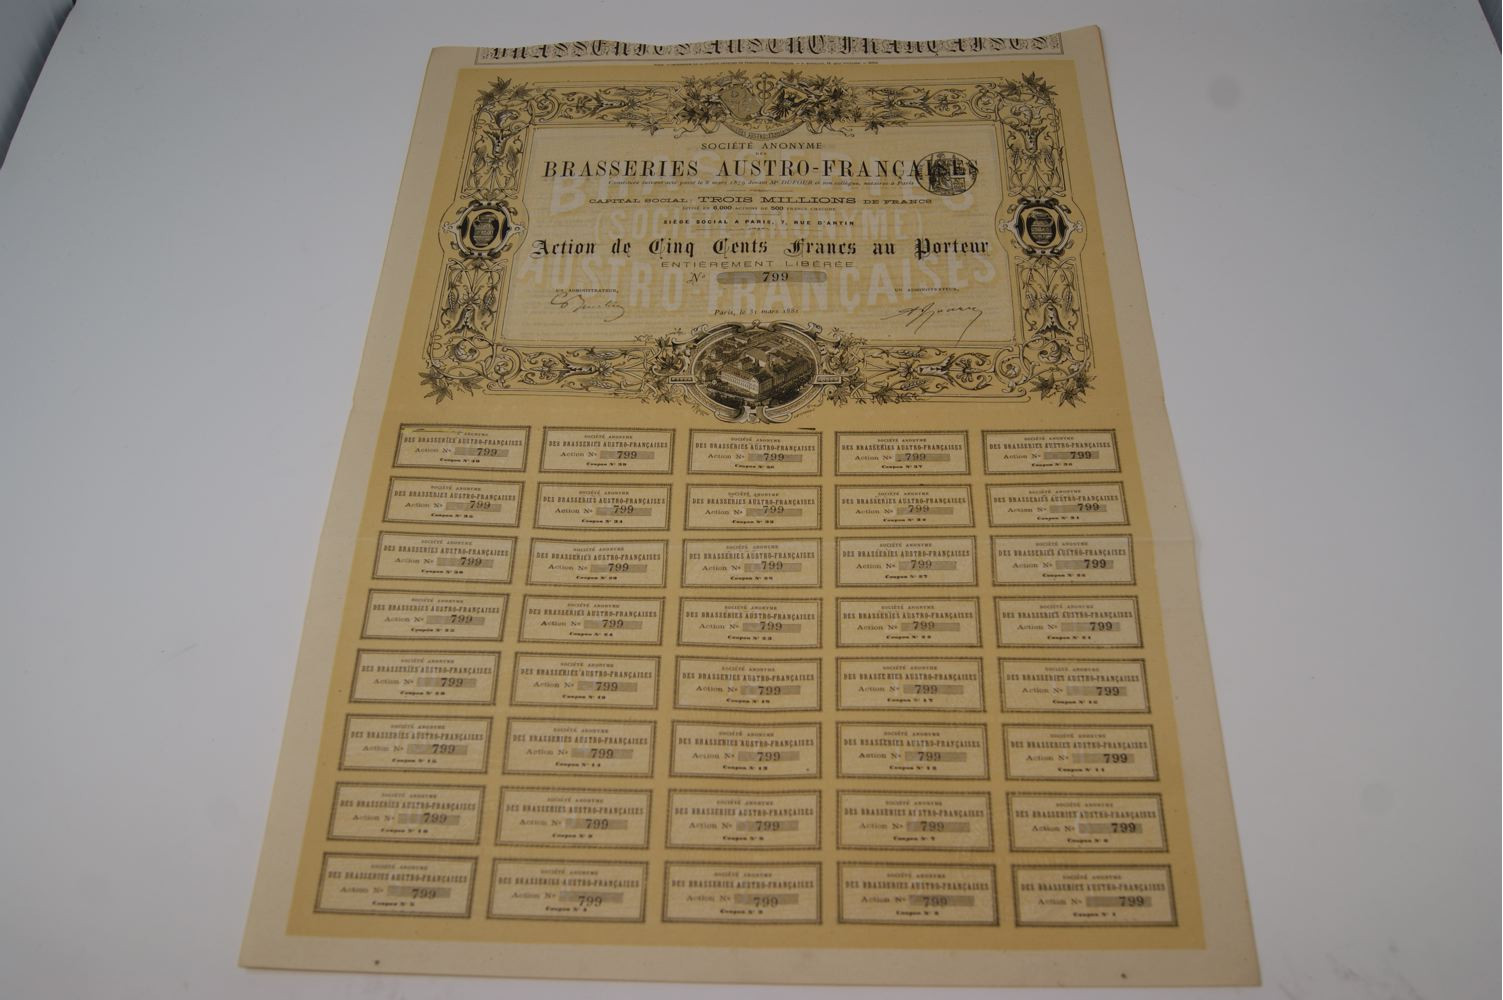 BRASSERIES AUSTRO-FRANÇAISES
SOCIÉTÉ ANONYME
DES
BRASSERIES AUSTRO-FRANÇAISES
Constituée suivant acte passé le 8 mars 1879 devant Me DUFOUR et son collègue, notaires à Paris
CAPITAL SOCIAL: TROIS MILLIONS DE FRANCS
DIVISÉ EN 6,000 ACTIONS DE 500 FRANCS CHACUNE
SIÈGE SOCIAL A PARIS, 7, RUE D'ANTIN
Action de Cinq Cents Francs au Porteur
ENTIÈREMENT LIBÉRÉE
No 799
UN ADMINISTRATEUR, UN ADMINISTRATEUR,
Paris, le 31 mars 1881
BRASSERIES
(SOCIÉTÉ ANONYME)
AUSTRO-FRANÇAISES
SOCIÉTÉ ANONYME
DES BRASSERIES AUSTRO-FRANÇAISES
Action No 799
Coupon No 40
SOCIÉTÉ ANONYME
DES BRASSERIES AUSTRO-FRANÇAISES
Action No 799
Coupon No 39
SOCIÉTÉ ANONYME
DES BRASSERIES AUSTRO-FRANÇAISES
Action No 799
Coupon No 38
SOCIÉTÉ ANONYME
DES BRASSERIES AUSTRO-FRANÇAISES
Action No 799
Coupon No 37
SOCIÉTÉ ANONYME
DES BRASSERIES AUSTRO-FRANÇAISES
Action No 799
Coupon No 36
SOCIÉTÉ ANONYME
DES BRASSERIES AUSTRO-FRANÇAISES
Action No 799
Coupon No 35
SOCIÉTÉ ANONYME
DES BRASSERIES AUSTRO-FRANÇAISES
Action No 799
Coupon No 34
SOCIÉTÉ ANONYME
DES BRASSERIES AUSTRO-FRANÇAISES
Action No 799
Coupon No 33
SOCIÉTÉ ANONYME
DES BRASSERIES AUSTRO-FRANÇAISES
Action No 799
Coupon No 32
SOCIÉTÉ ANONYME
DES BRASSERIES AUSTRO-FRANÇAISES
Action No 799
Coupon No 31
SOCIÉTÉ ANONYME
DES BRASSERIES AUSTRO-FRANÇAISES
Action No 799
Coupon No 30
SOCIÉTÉ ANONYME
DES BRASSERIES AUSTRO-FRANÇAISES
Action No 799
Coupon No 29
SOCIÉTÉ ANONYME
DES BRASSERIES AUSTRO-FRANÇAISES
Action No 799
Coupon No 28
SOCIÉTÉ ANONYME
DES BRASSERIES AUSTRO-FRANÇAISES
Action No 799
Coupon No 27
SOCIÉTÉ ANONYME
DES BRASSERIES AUSTRO-FRANÇAISES
Action No 799
Coupon No 26
SOCIÉTÉ ANONYME
DES BRASSERIES AUSTRO-FRANÇAISES
Action No 799
Coupon No 25
SOCIÉTÉ ANONYME
DES BRASSERIES AUSTRO-FRANÇAISES
Action No 799
Coupon No 24
SOCIÉTÉ ANONYME
DES BRASSERIES AUSTRO-FRANÇAISES
Action No 799
Coupon No 23
SOCIÉTÉ ANONYME
DES BRASSERIES AUSTRO-FRANÇAISES
Action No 799
Coupon No 22
SOCIÉTÉ ANONYME
DES BRASSERIES AUSTRO-FRANÇAISES
Action No 799
Coupon No 21
SOCIÉTÉ ANONYME
DES BRASSERIES AUSTRO-FRANÇAISES
Action No 799
Coupon No 20
SOCIÉTÉ ANONYME
DES BRASSERIES AUSTRO-FRANÇAISES
Action No 799
Coupon No 19
SOCIÉTÉ ANONYME
DES BRASSERIES AUSTRO-FRANÇAISES
Action No 799
Coupon No 18
SOCIÉTÉ ANONYME
DES BRASSERIES AUSTRO-FRANÇAISES
Action No 799
Coupon No 17
SOCIÉTÉ ANONYME
DES BRASSERIES AUSTRO-FRANÇAISES
Action No 799
Coupon No 16
SOCIÉTÉ ANONYME
DES BRASSERIES AUSTRO-FRANÇAISES
Action No 799
Coupon No 15
SOCIÉTÉ ANONYME
DES BRASSERIES AUSTRO-FRANÇAISES
Action No 799
Coupon No 14
SOCIÉTÉ ANONYME
DES BRASSERIES AUSTRO-FRANÇAISES
Action No 799
Coupon No 13
SOCIÉTÉ ANONYME
DES BRASSERIES AUSTRO-FRANÇAISES
Action No 799
Coupon No 12
SOCIÉTÉ ANONYME
DES BRASSERIES AUSTRO-FRANÇAISES
Action No 799
Coupon No 11
SOCIÉTÉ ANONYME
DES BRASSERIES AUSTRO-FRANÇAISES
Action No 799
Coupon No 10
SOCIÉTÉ ANONYME
DES BRASSERIES AUSTRO-FRANÇAISES
Action No 799
Coupon No 9
SOCIÉTÉ ANONYME
DES BRASSERIES AUSTRO-FRANÇAISES
Action No 799
Coupon No 8
SOCIÉTÉ ANONYME
DES BRASSERIES AUSTRO-FRANÇAISES
Action No 799
Coupon No 7
SOCIÉTÉ ANONYME
DES BRASSERIES AUSTRO-FRANÇAISES
Action No 799
Coupon No 6
SOCIÉTÉ ANONYME
DES BRASSERIES AUSTRO-FRANÇAISES
Action No 799
Coupon No 5
SOCIÉTÉ ANONYME
DES BRASSERIES AUSTRO-FRANÇAISES
Action No 799
Coupon No 4
SOCIÉTÉ ANONYME
DES BRASSERIES AUSTRO-FRANÇAISES
Action No 799
Coupon No 3
SOCIÉTÉ ANONYME
DES BRASSERIES AUSTRO-FRANÇAISES
Action No 799
Coupon No 2
SOCIÉTÉ ANONYME
DES BRASSERIES AUSTRO-FRANÇAISES
Action No 799
Coupon No 1